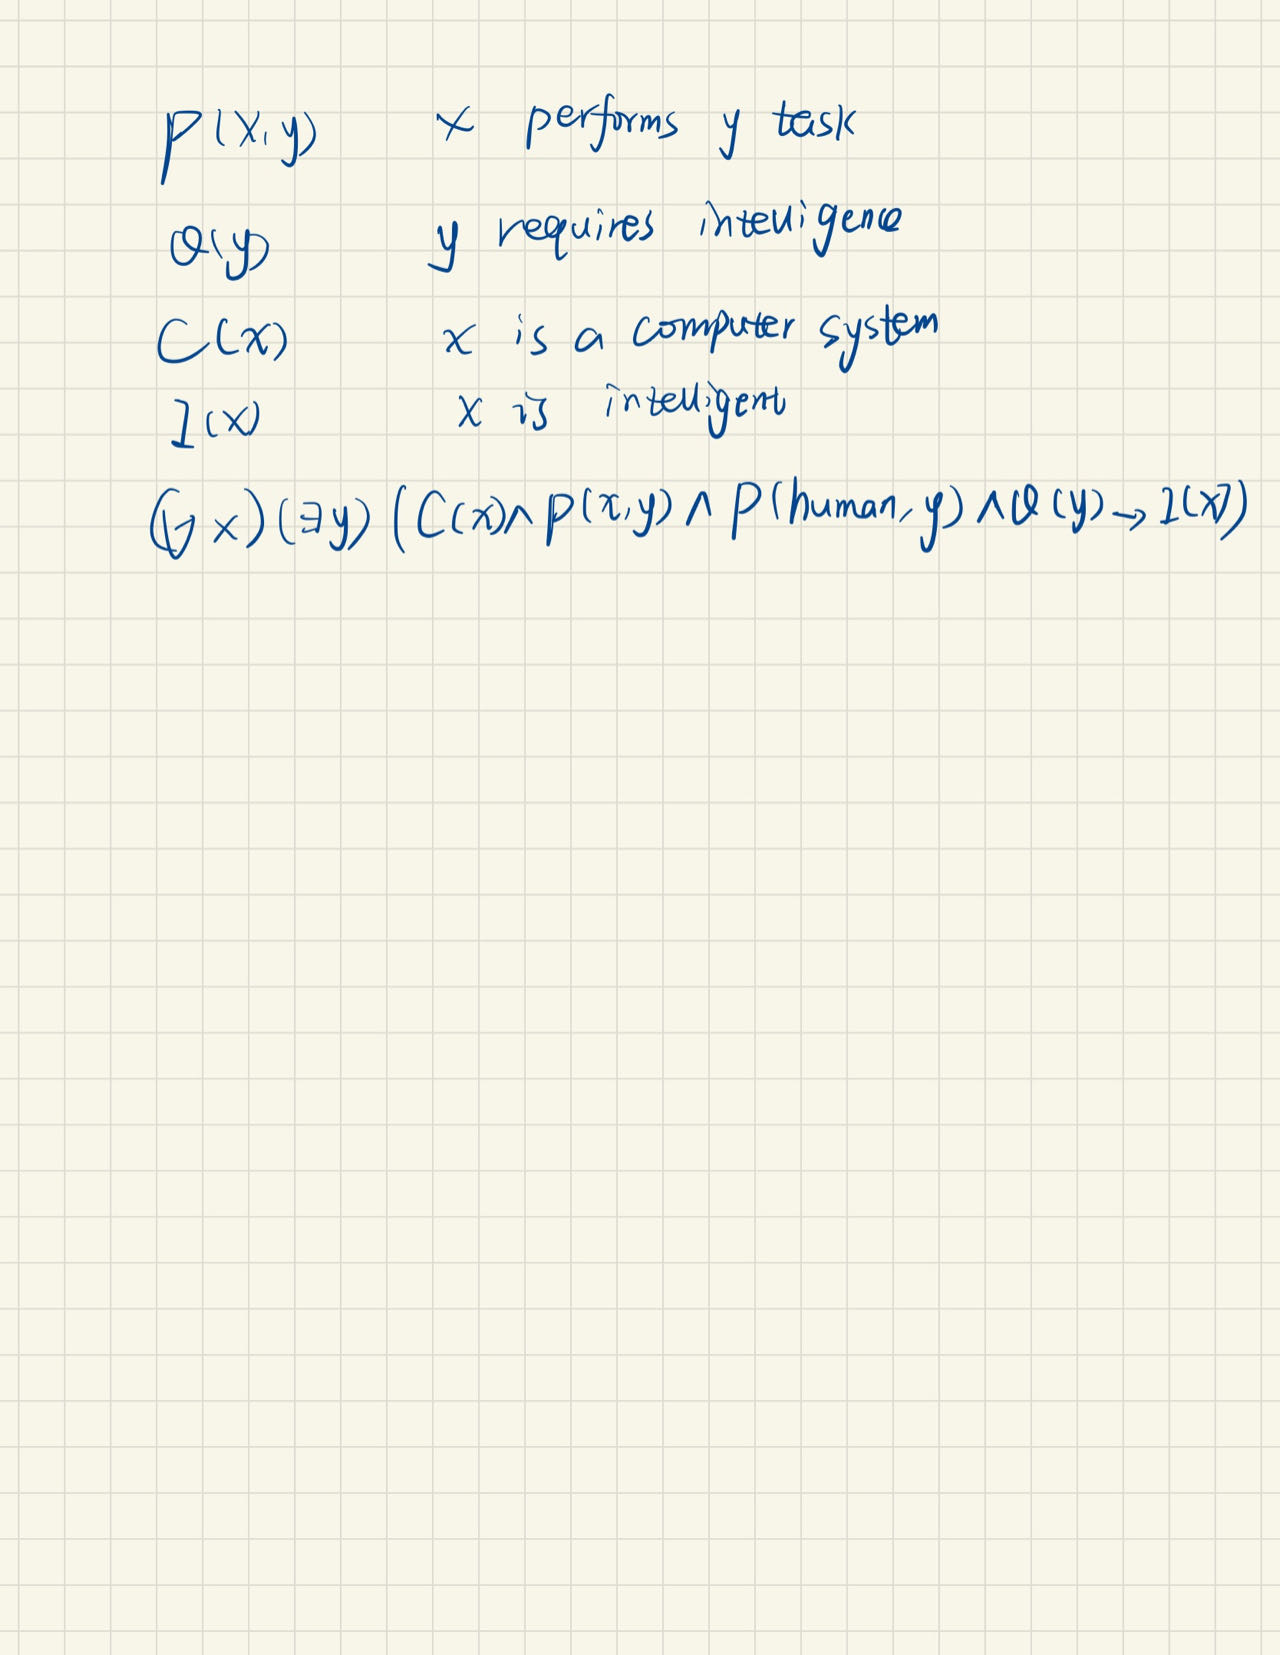 P(x,y) x performs y task
Q(y) y requires intelligence
C(x) x is a computer system
I(x) x is intelligent
(∀x)(∃y)(C(x)∧P(x,y)∧P(human,y)∧Q(y)→I(x))